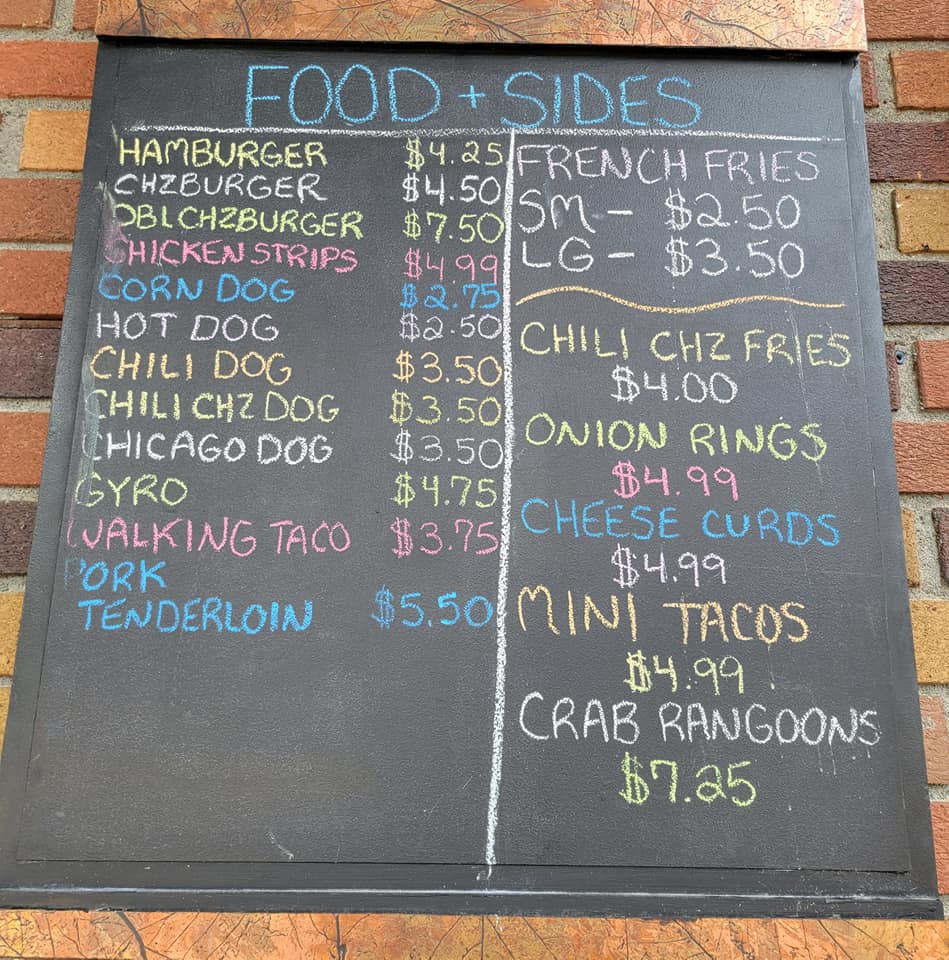 FOOD + SIDES
HAMBURGER $4.25
CHZBURGER $4.50
DBLCHZBURGER $7.50
CHICKEN STRIPS $4.99
CORN DOG $2.75
HOT DOG $2.50
CHILI DOG $3.50
CHILI CHZ DOG $3.50
CHICAGO DOG $3.50
GYRO $4.75
WALKING TACO $3.75
PORK
TENDERLOIN $5.50
FRENCH FRIES
SM - $2.50
LG - $3.50
CHILI CHZ FRIES
$4.00
ONION RINGS
$4.99
CHEESE CURDS
$4.99
MINI TACOS
$4.99
CRAB RANGOONS
$7.25